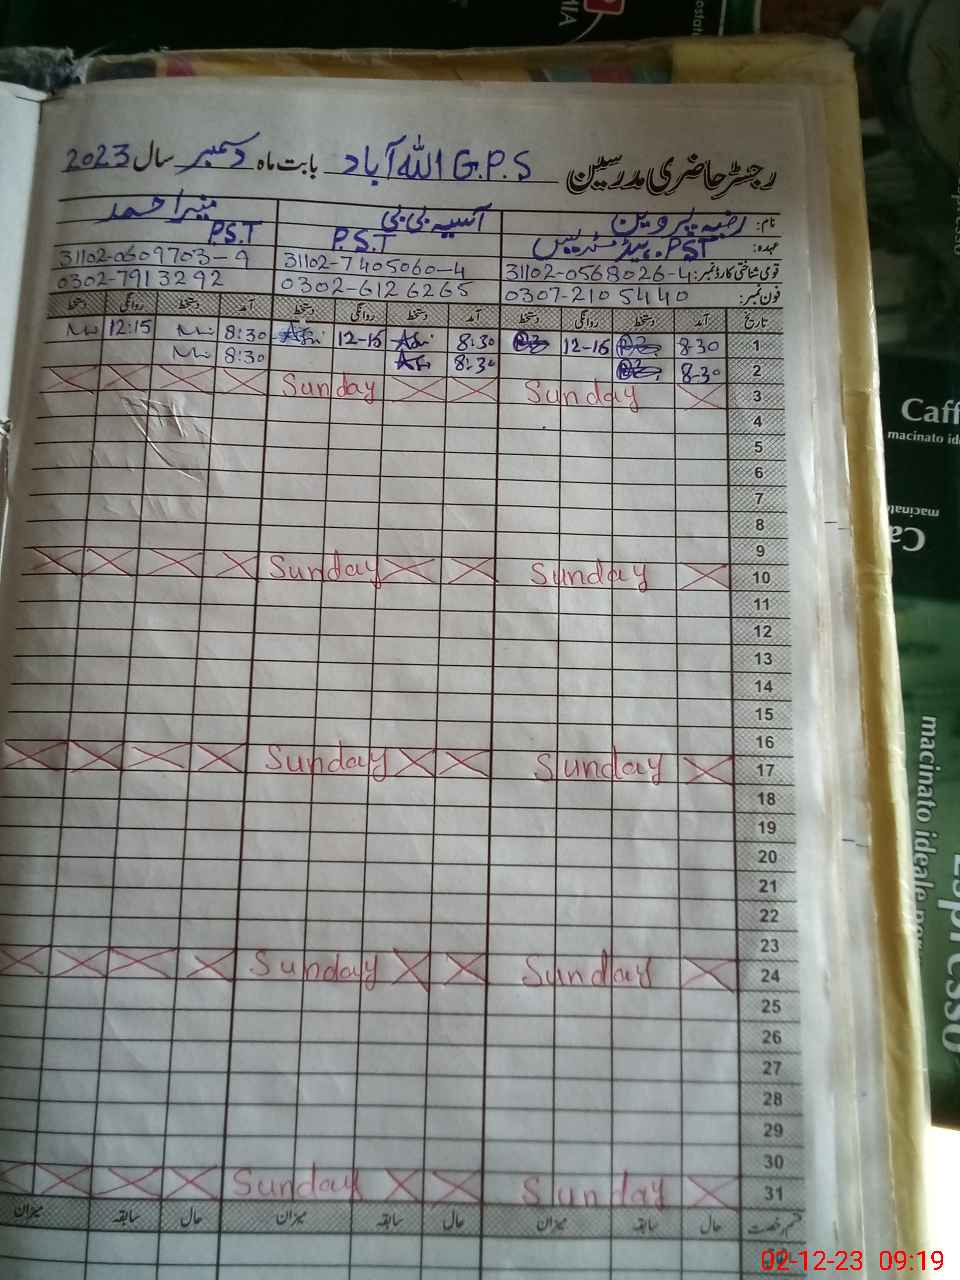 رجسٹر حاضری مدرسین G.P.S اللہ آباد بابت ماہ دسمبر سال 2023
نام: رضیہ پروین آسیہ بی بی منیر احمد
عہدہ: PST ہیڈ مسٹریس P.S.T P.S.T
قومی شناختی کارڈ نمبر: 31102-0568026-4 31102-7405060-4 31102-0609703-9
فون نمبر: 0307-2105440 0302-6126265 0302-7913292
تاریخ آمد دستخط روانگی دستخط آمد دستخط روانگی دستخط آمد دستخط روانگی دستخط
1 8-30 12-15 8:30 12-15 8:30 12:15
2 8-30 8:30 8:30
3 Sunday Sunday
4
5
6
7
8
9
10 Sunday Sunday
11
12
13
14
15
16
17 Sunday Sunday
18
19
20
21
22
23
24 Sunday Sunday
25
26
27
28
29
30
31 Sunday Sunday
قسم رخصت حال سابقہ میزان حال سابقہ میزان حال سابقہ میزان
Caff
macinato id
macinato ideale
Espresso
02-12-23 09:19